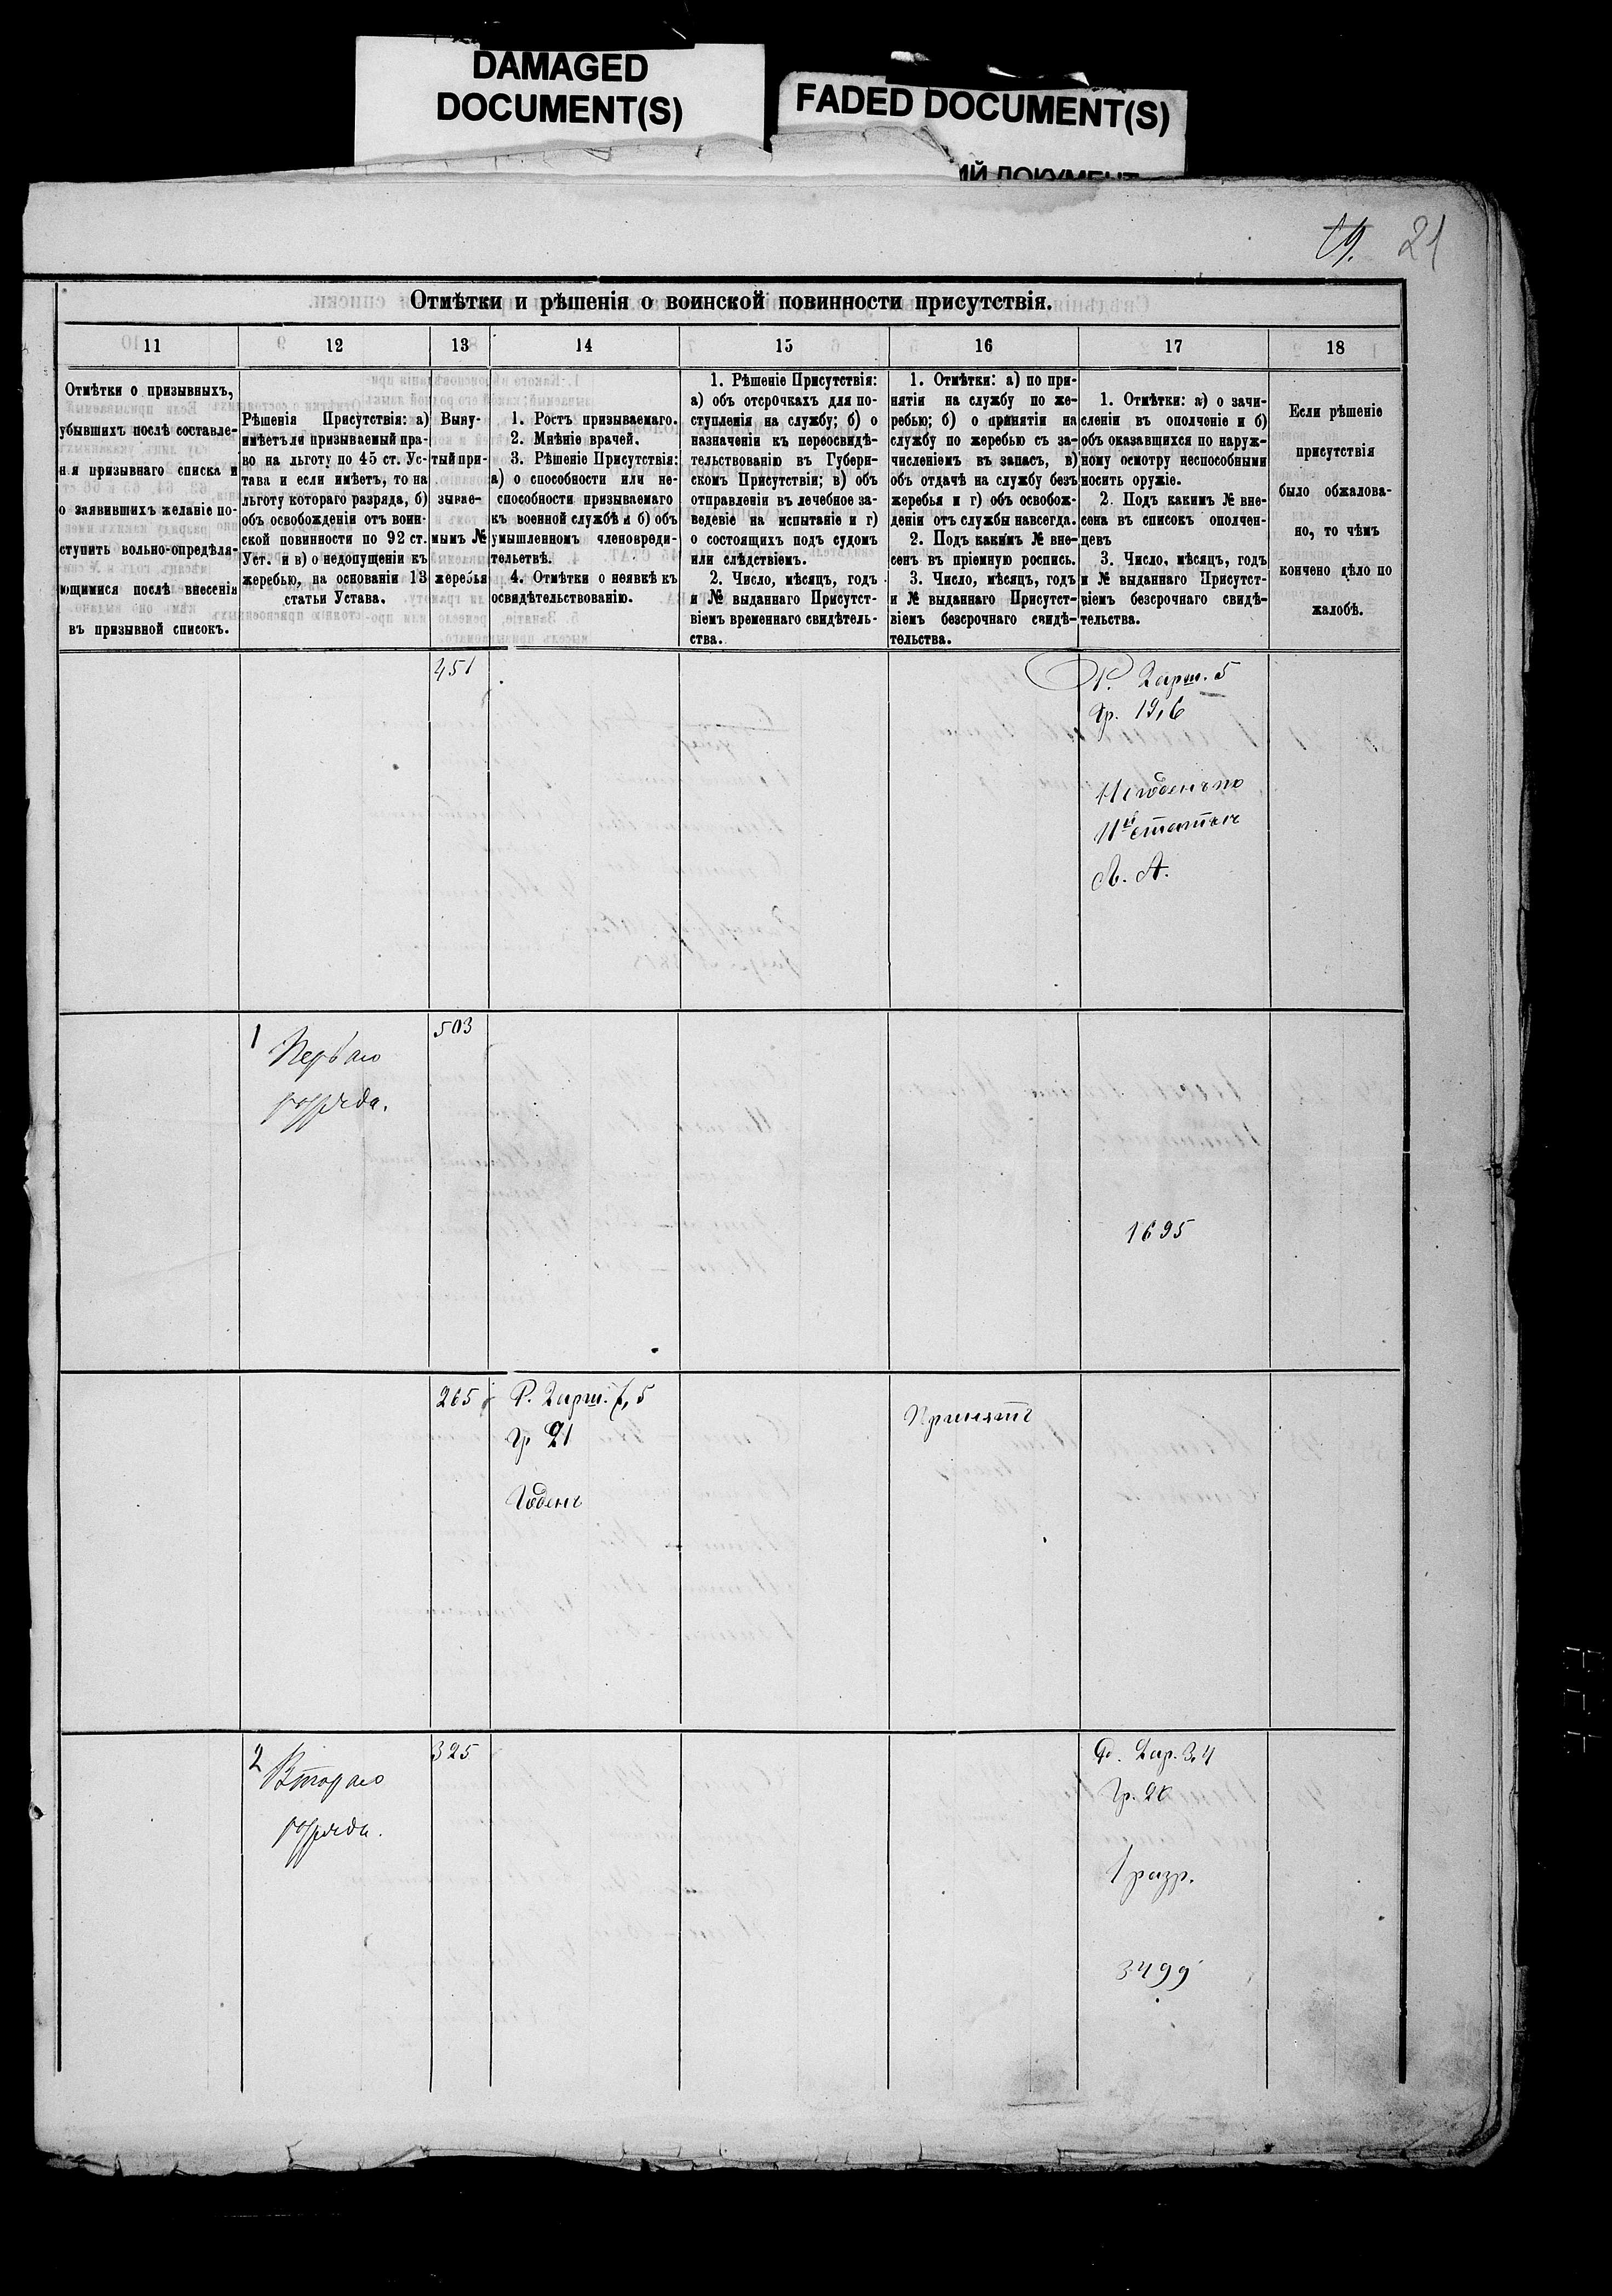 DAMAGED
DOCUMENT(S)
FADED DOCUMENT(S)
ИЙ ДОКУМЕНТ
19. 21
Отмѣтки и рѣшенія о воинской повинности присутствія.
11 12 13 14 15 16 17 18
Отмѣтки о призывныхъ,
убывшихъ послѣ составле-
нія призывнаго списка и
о заявившихъ желаніе по-
ступить вольно-опредѣля-
ющимися послѣ внесенія
въ призывной списокъ.
Рѣшенія Присутствія: а)
имѣетъ ли призываемый пра-
во на льготу по 45 ст. Ус-
тава и если имѣетъ, то на
льготу котораго разряда, б)
объ освобожденіи отъ воин-
ской повинности по 92 ст.
Уст. и в) о недопущеніи къ
жеребью, на основаніи 13
статьи Устава.
Выну-
тый при-
зывае-
мымъ №
жеребья
1. Ростъ призываемаго.
2. Мнѣніе врачей.
3. Рѣшеніе Присутствія:
а) о способности или не-
способности призываемаго
къ военной службѣ и б) объ
умышленномъ членовреди-
тельствѣ.
4. Отмѣтки о неявкѣ къ
освидѣтельствованію.
1. Рѣшеніе Присутствія:
а) объ отсрочкахъ для по-
ступленія на службу; б) о
назначеніи къ переосвидѣ-
тельствованію въ Губерн-
скомъ Присутствіи; в) объ
отправленіи въ лечебное за-
веденіе на испытаніе и г)
о состоящихъ подъ судомъ
или слѣдствіемъ.
2. Число, мѣсяцъ, годъ
и № выданнаго Присутст-
віемъ временнаго свидѣтель-
ства.
1. Отмѣтки: а) по при-
нятіи на службу по же-
ребью; б) о принятіи на
службу по жеребью съ за-
численіемъ въ запасъ, в)
объ отдачѣ на службу безъ
жеребья и г) объ освобож-
деніи отъ службы навсегда.
2. Подъ какимъ № вне-
сенъ въ пріемную роспись.
3. Число, мѣсяцъ, годъ
и № выданнаго Присутст-
віемъ безсрочнаго свидѣ-
тельства.
1. Отмѣтки: а) о зачи-
сленіи въ ополченіе и б)
объ оказавшихся по наруж-
ному осмотру неспособными
носить оружіе.
2. Подъ какимъ № вне-
сена въ списокъ ополчен-
цевъ
3. Число, мѣсяцъ, годъ
и № выданнаго Присутст-
віемъ безсрочнаго свидѣ-
тельства.
Если рѣшеніе
присутствія
было обжалова-
но, то чѣмъ
кончено дѣло по
жалобѣ.
451
Р. 2 арш. 5
Гр. 19,6
Негоденъ по
11й статьи
Л. А.
1
Перваго
разряда.
503
1695
265
Р. 2 арш. 5
Гр 21
Годенъ
Принятъ
2
Втораго
разряда.
325
Р. 2 ар. 3,4
Гр. 20
1 разр.
3499